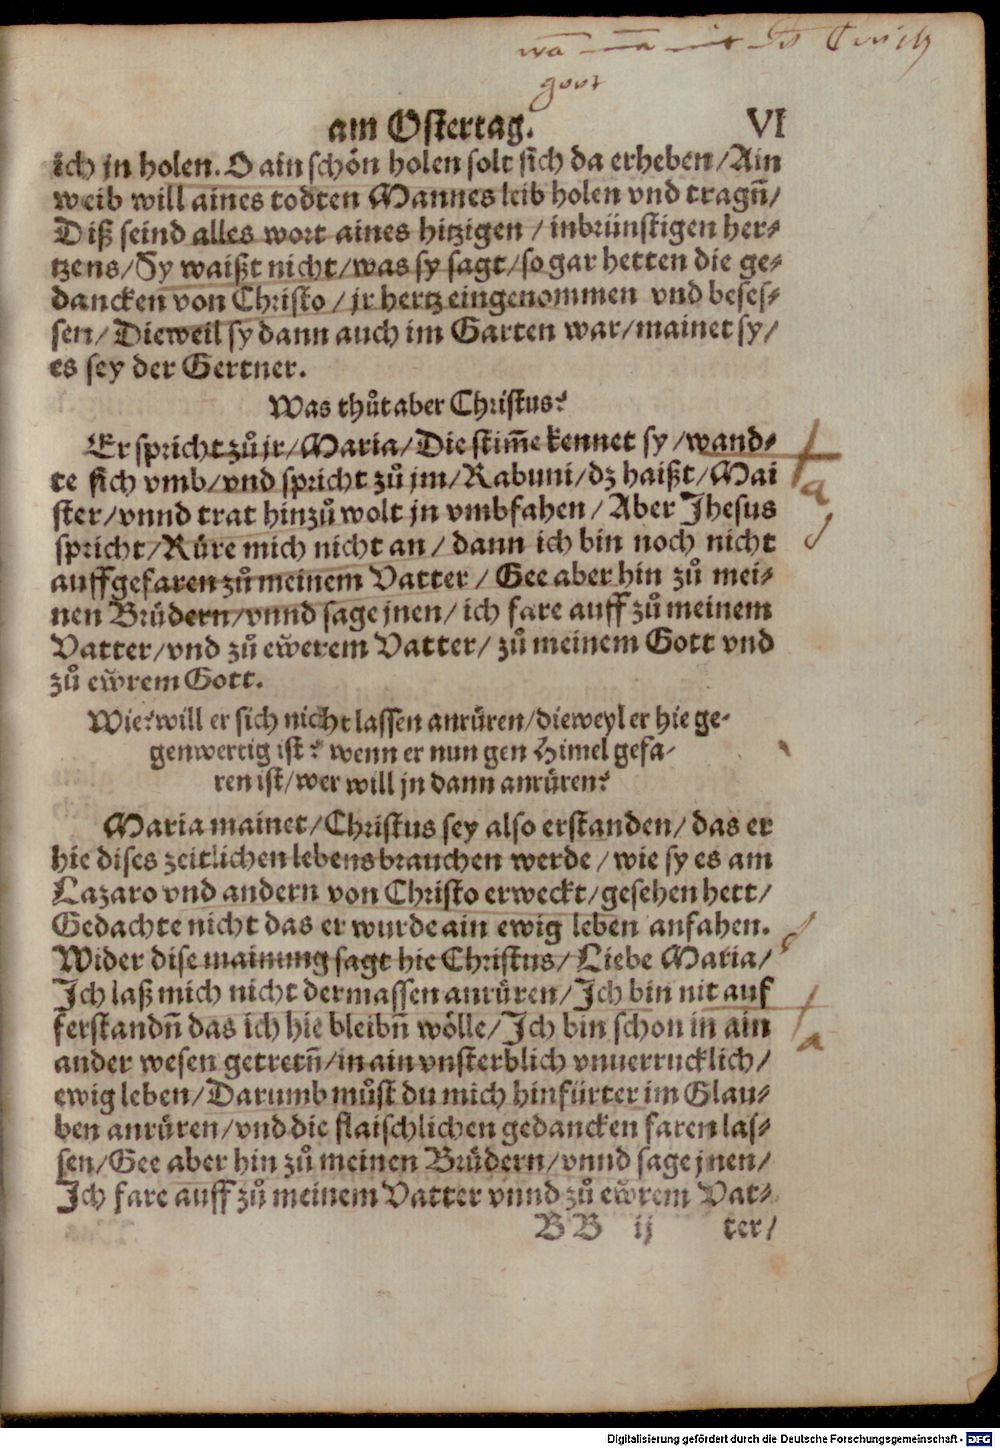 am Ostertag. VI
ich jn holen. O ain schön holen solt sich da erheben/Ain
weib will aines todten Mannes leib holen vnd tragñ/
Diß seind alles wort aines hitzigen / inbrünstigen her-
tzens/Sy waißt nicht/was sy sagt/so gar hetten die ge-
dancken von Christo / jr hertz eingenommen vnd beses-
sen/ Dieweil sy dann auch im Garten war/mainet sy/
es sey der Gertner.
Was thůt aber Christus?
Er spricht zů jr/Maria/Die stim̄e kennet sy /wand-
te sich vmb/vnd spricht zů jm/Rabuni/dz haißt/Mai
ster/vnnd trat hinzů wolt jn vmbfahen / Aber Jhesus
spricht/Rüre mich nicht an / dann ich bin noch nicht
auffgefaren zů meinem Vatter / Gee aber hin zů mei-
nen Brüdern/vnnd sage jnen/ ich fare auff zů meinem
Vatter/vnd zů ew̌erem Vatter/ zů meinem Gott vnd
zů ew̌rem Gott.
Wie? will er sich nicht lassen anrüren/dieweyl er hie ge-
genwertig ist? wenn er nun gen Himel gefa-
ren ist/wer will jn dann anrüren?
Maria mainet/Christus sey also erstanden/ das er
hie dises zeitlichen lebens brauchen werde / wie sy es am
Lazaro vnd andern von Christo erweckt/gesehen hett/
Gedachte nicht das er wurde ain ewig leben anfahen.
Wider dise mainung sagt hie Christus/ Liebe Maria/
Ich laß mich nicht dermassen anrüren/Ich bin nit auf
ferstandñ das ich hie bleibñ wölle/Ich bin schon in ain
ander wesen getretñ/in ain vnsterblich vnuerrucklich/
ewig leben/Darumb můst du mich hinfürter im Glau-
ben anrüren/vnd die flaischlichen gedancken faren las-
sen/Gee aber hin zů meinen Brüdern/vnnd sage jnen/
Ich fare auff zů meinem Vatter vnnd zů ew̌rem Vat-
BB ij ter/
Digitalisierung gefördert durch die Deutsche Forschungsgemeinschaft - DFG